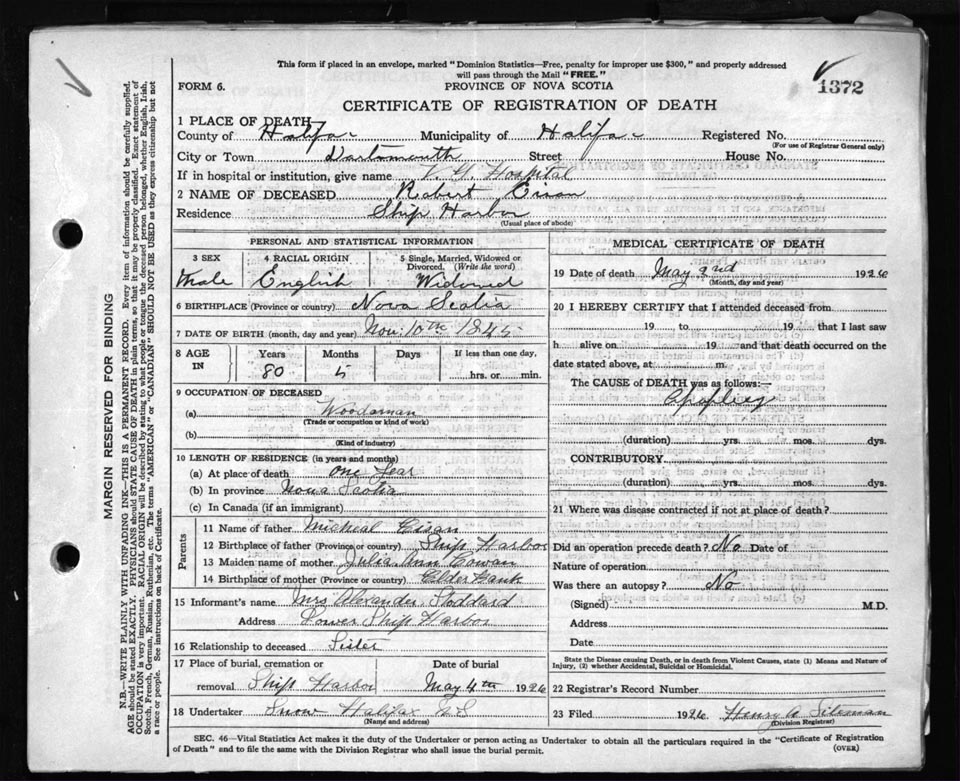 This form if placed in an envelope, marked "Dominion Statistics—Free, penalty for improper use $300," and properly addressed
will pass through the Mail "FREE."
FORM 6.
PROVINCE OF NOVA SCOTIA
1372
CERTIFICATE OF REGISTRATION OF DEATH
1 PLACE OF DEATH
County of Halifax Municipality of Halifax Registered No.
(For use of Registrar General only)
City or Town Dartmouth Street House No.
If in hospital or institution, give name V. G. Hospital
2 NAME OF DECEASED Robert Eisan
Residence Ship Harbor
(Usual place of abode)
PERSONAL AND STATISTICAL INFORMATION
3 SEX 4 RACIAL ORIGIN 5 Single, Married, Widowed or
Divorced. (Write the word)
Male English Widowed
6 BIRTHPLACE (Province or country) Nova Scotia
7 DATE OF BIRTH (month, day and year) Nov. 10th 1845
8 AGE IN Years Months Days If less than one day,
80 5 hrs. or min.
9 OCCUPATION OF DECEASED
(a) Woodsman
(Trade or occupation or kind of work)
(b)
(Kind of industry)
10 LENGTH OF RESIDENCE (in years and months)
(a) At place of death one Year
(b) In province Nova Scotia
(c) In Canada (if an immigrant)
Parents
11 Name of father Micheal Eisan
12 Birthplace of father (Province or country) Ship Harbor
13 Maiden name of mother Julia Ann Cowan
14 Birthplace of mother (Province or country) Elder Bank
15 Informant's name Mrs Alexander Stoddard
Address Lower Ship Harbor
16 Relationship to deceased Sister
17 Place of burial, cremation or Date of burial
removal Ship Harbor May 4th 1926
18 Undertaker Snow Halifax N S
(Name and address)
MEDICAL CERTIFICATE OF DEATH
19 Date of death May 2nd 1926
(Month, day and year)
20 I HEREBY CERTIFY that I attended deceased from
19 to 19 that I last saw
h alive on 19 and that death occurred on the
date stated above, at m.
The CAUSE of DEATH was as follows:—
Apoplexy
(duration) yrs. mos. dys.
CONTRIBUTORY
(duration) yrs. mos. dys.
21 Where was disease contracted if not at place of death?
Did an operation precede death? No Date of
Nature of operation
Was there an autopsy? No
(Signed) M.D.
Address
Date
State the Disease causing Death, or in death from Violent Causes, state (1) Means and Nature of
Injury, (2) whether Accidental, Suicidal or Homicidal.
22 Registrar's Record Number
23 Filed 1926 Henry A
(Division Registrar)
SEC. 46—Vital Statistics Act makes it the duty of the Undertaker or person acting as Undertaker to obtain all the particulars required in the "Certificate of Registration
of Death" and to file the same with the Division Registrar who shall issue the burial permit.
(OVER)
MARGIN RESERVED FOR BINDING
N.B.—WRITE PLAINLY WITH UNFADING INK—THIS IS A PERMANENT RECORD. Every item of information should be carefully supplied.
AGE should be stated EXACTLY. PHYSICIANS should STATE CAUSE OF DEATH in plain terms, so that it may be properly classified. Exact statement of
OCCUPATION is very important. RACIAL ORIGIN will be described by stating to what people or tongue the deceased person belonged, whether English, Irish,
Scotch, French, German, Russian, Ruthenian, etc. The terms "AMERICAN" or "CANADIAN" SHOULD NOT BE USED as they express citizenship but not
a race or people. See instructions on back of Certificate.